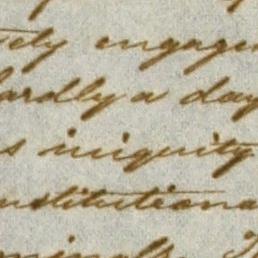 ely engage
ardly a day
s iniquity
nstitutiona
minals. T